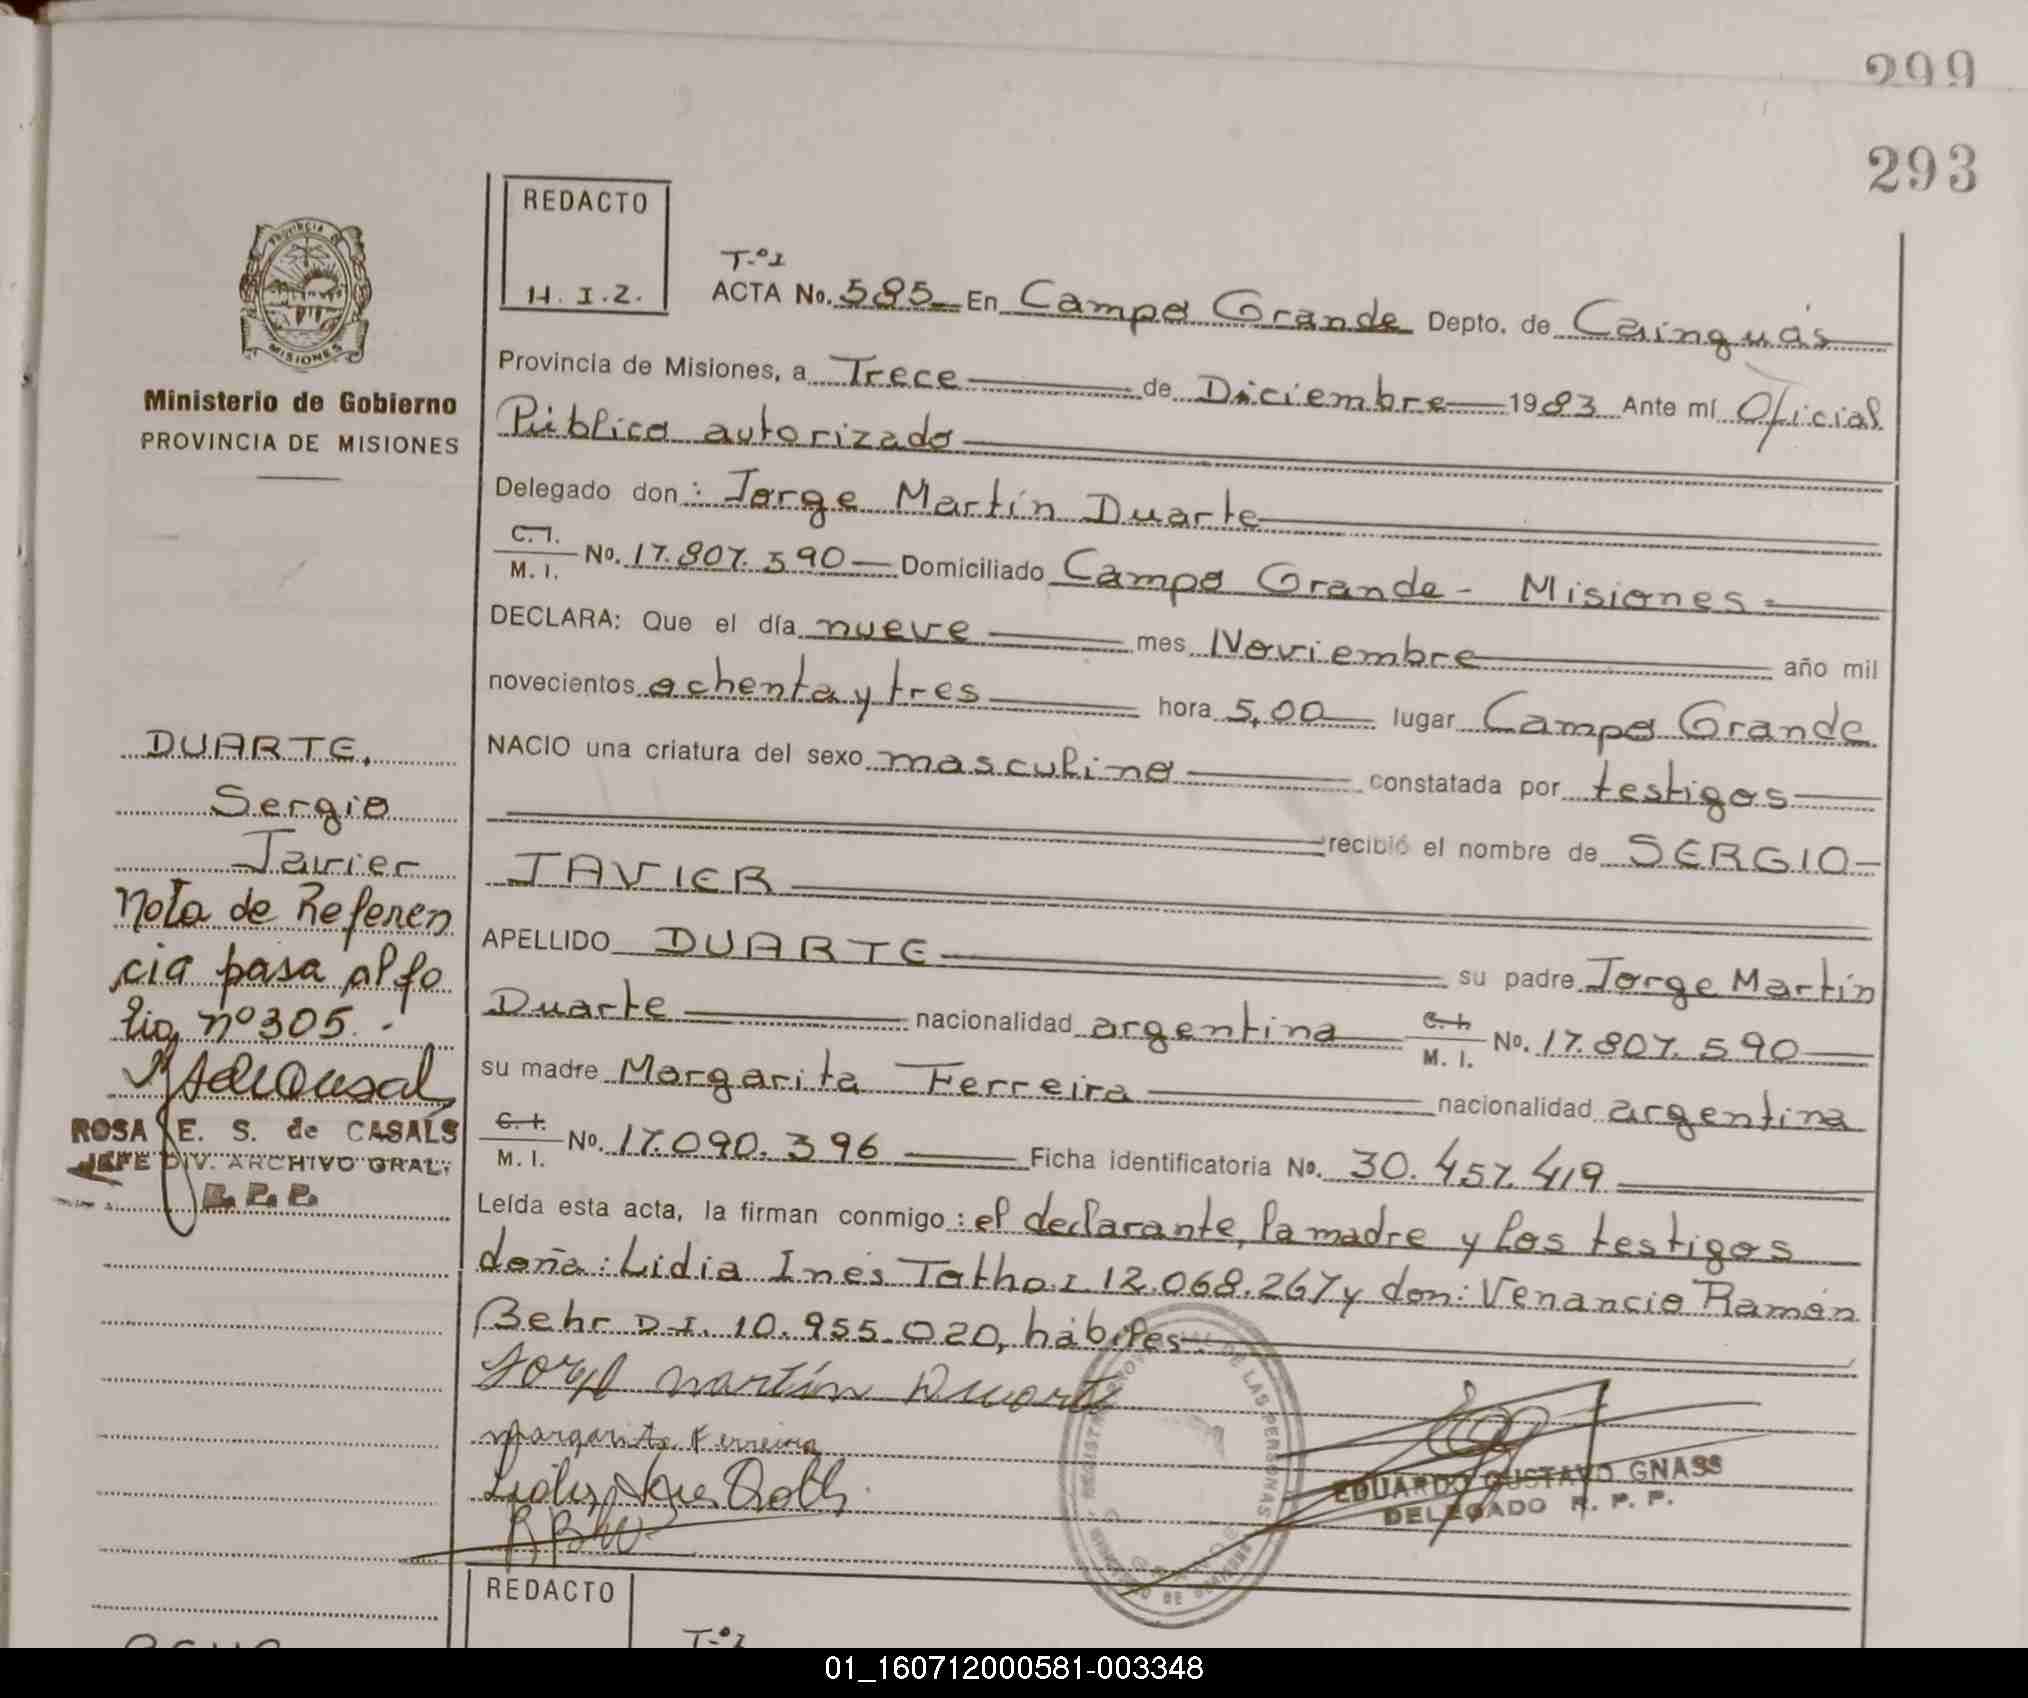 299
293
REDACTO
H. I. Z.
PROVINCIA DE
MISIONES
Ministerio de Gobierno
PROVINCIA DE MISIONES
T.º1
ACTA No. 585 En Campo Grande Depto. de Cainguás
Provincia de Misiones, a Trece de Diciembre 1983 Ante mí Oficial
Público autorizado
Delegado don: Jorge Martín Duarte
C.I.
M. I. No. 17.807.590 Domiciliado Campo Grande - Misiones
DECLARA: Que el día nueve mes Noviembre año mil
novecientos ochenta y tres hora 5,00 lugar Campo Grande
NACIO una criatura del sexo masculino constatada por testigos
recibió el nombre de SERGIO
JAVIER
APELLIDO DUARTE su padre Jorge Martín
Duarte nacionalidad argentina C. I. M. I. No. 17.807.590
su madre Margarita Ferreira nacionalidad argentina
C. I.
M. I. No. 17.090.396 Ficha identificatoria No. 30.457.419
Leída esta acta, la firman conmigo: el declarante, la madre y los testigos
doña: Lidia Inés I 12.068.267 y don: Venancio Ramón
Behr D.I. 10.955.020, hábiles.
Jorge Martín Duarte
Margarita Ferreira
DUARTE,
Sergio
Javier
Nota de Referen
cia pasa al fo
lio nº 305.
ROSA E. S. de CASALS
JEFE DIV. ARCHIVO GRAL.
R. P. P.
DE LAS PERSONAS
EDUARDO GUSTAVO GNASS
DELEGADO R. P. P.
REDACTO
T.º1
01_160712000581-003348